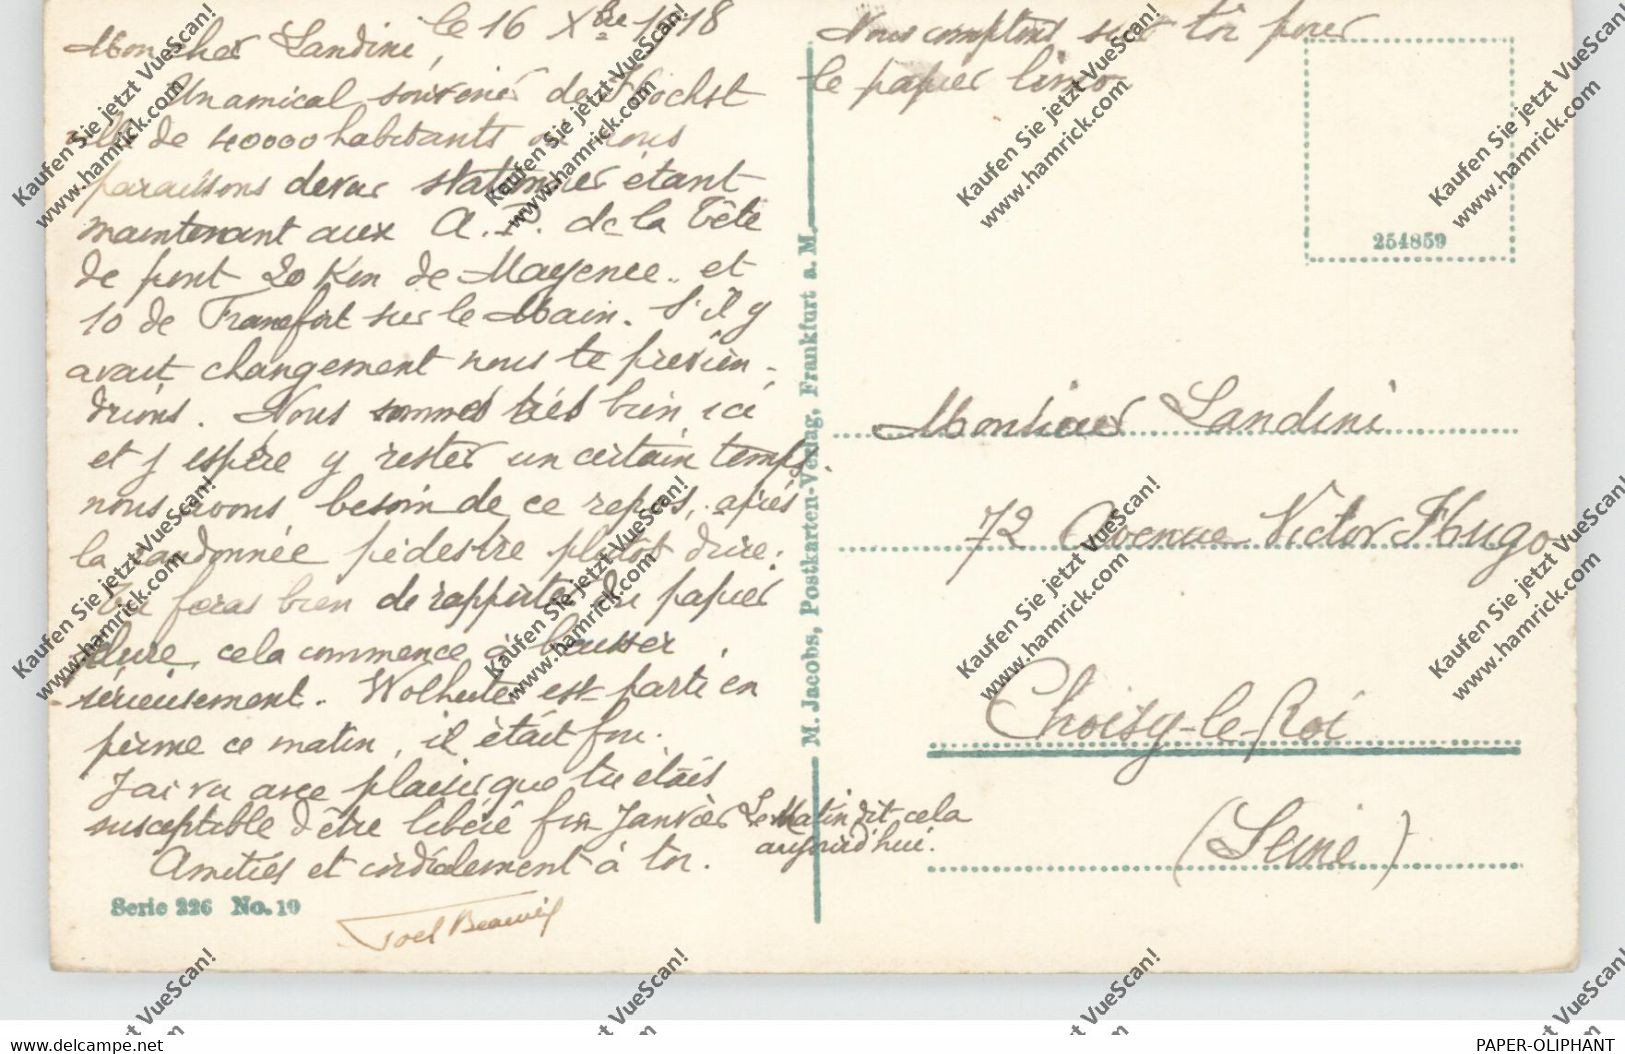 le 16 Xbre 1918
Mon cher Landini,
Un amical souvenir de Hochst
ville de 40000 habitants où nous
paraissons devoir stationner étant
maintenant aux A.P. de la Tête
de pont 20 Km de Mayence.. et
10 de Francfort sur le Main. S'il y
avait changement nous te prévien-
drions. Nous sommes très bien ici
et j'espère y rester un certain temps.
nous avons besoin de ce repos, après
la randonnée pédestre plutôt dure.
Tu feras bien de rapporter du papier
cela commence à baisser
sérieusement. Wolhuter est parti en
perme ce matin, il était fou.
J'ai vu avec plaisir que tu étais
susceptible d'être libéré fin Janvier Le Matin dit cela
aujourd'hui.
Amitiés et cordialement à toi.
Serie 226 No. 19
M. Jacobs, Postkarten-Verlag, Frankfurt a. M.
Nous comptons sur toi pour
le papier
254859
Monsieur Landini
72 Avenue Victor Hugo
Choisy-le-Roi
(Seine)
Kaufen Sie jetzt VueScan!
www.hamrick.com
delcampe.net
PAPER-OLIPHANT